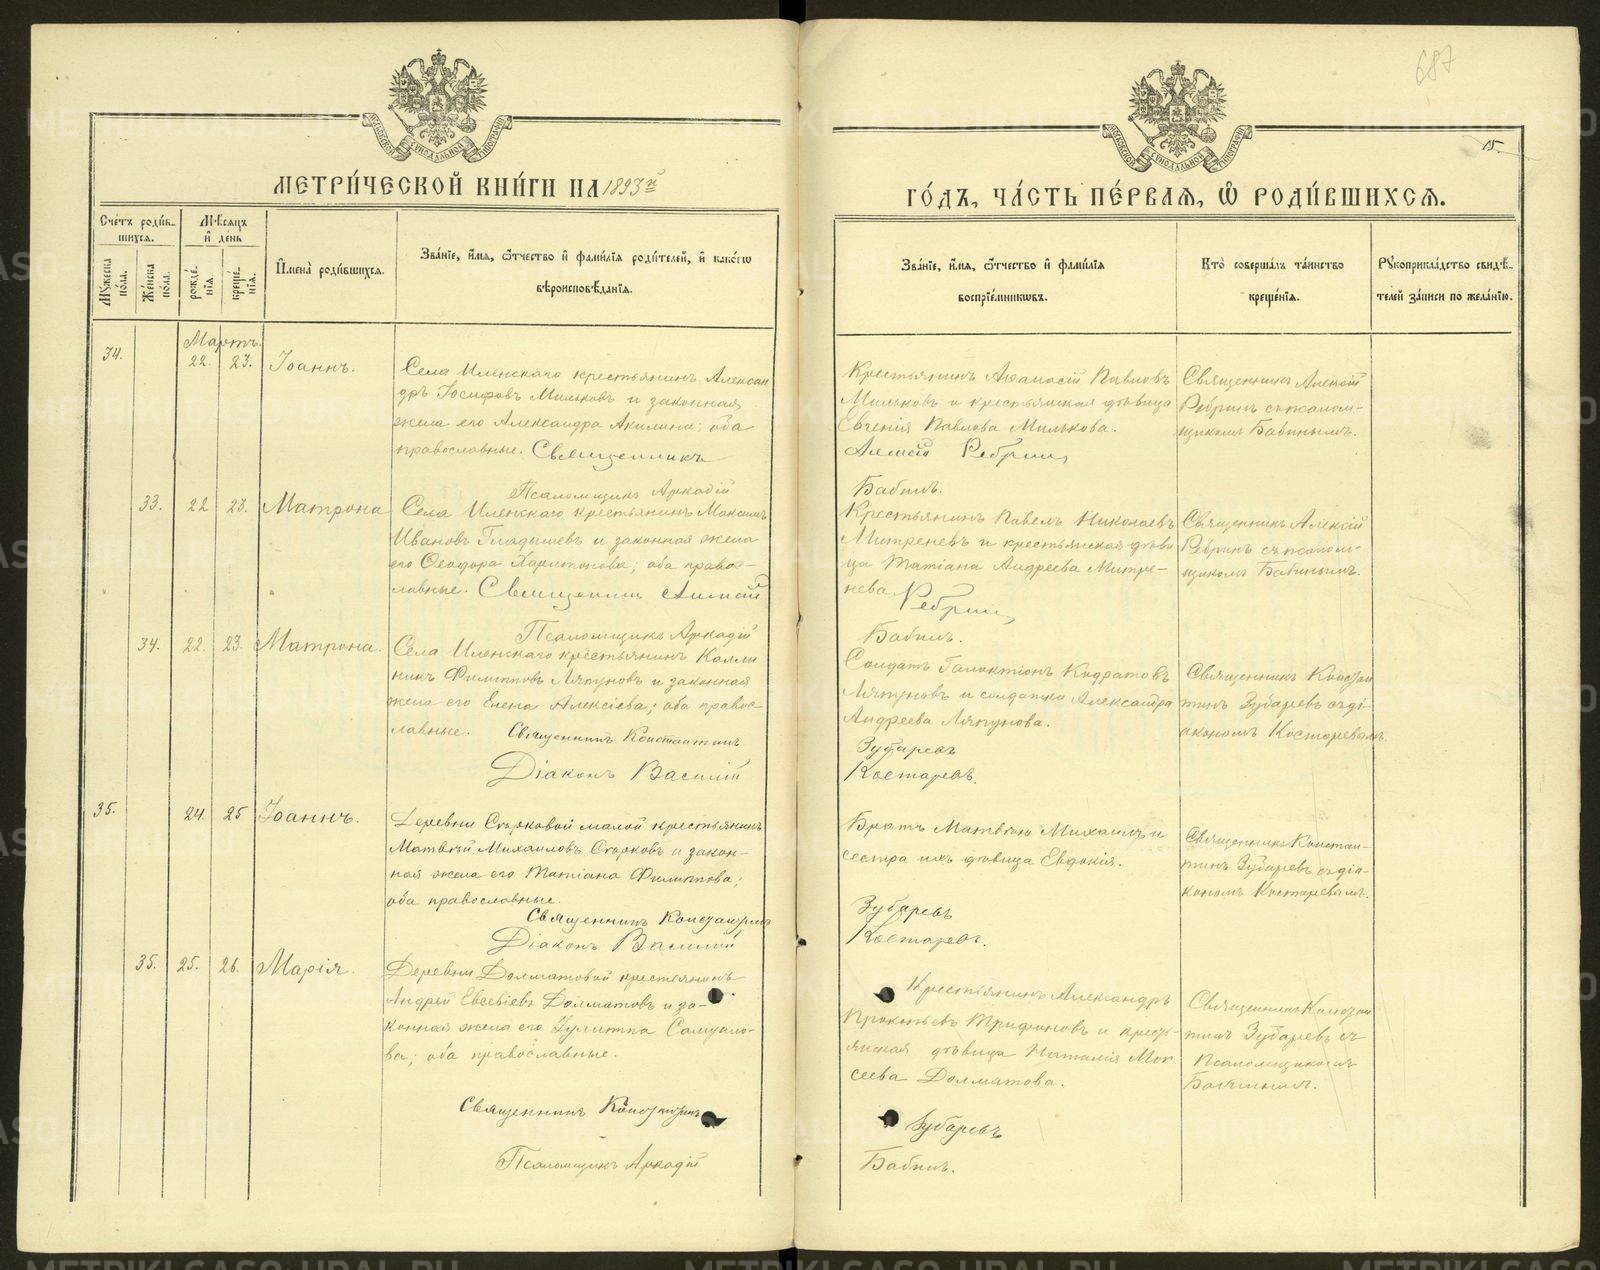 687
15.
МЕТРИ́ЧЕСКОЙ КНИ́ГИ НА 1893й
ГО́ДЪ, ЧА́СТЬ ПЕ́РВАѦ, Ѿ РОДИ́ВШИХСѦ.
Сче́тъ роди́в-
шихсѧ.
Му́жеска по́ла.
Же́нска по́ла.
Мѣ́сяцъ и де́нь
рожде́нїѧ.
креще́нїѧ.
И́мена̀ роди́вшихсѧ.
Зва́нїе, и́мѧ, ѻ́тчество и фами́лїѧ роди́телей, и како́гѡ
вѣроисповѣ́данїѧ.
Зва́нїе, и́мѧ, ѻ́тчество и фами́лїѧ
воспрїе́мникѡвъ.
Кто̀ соверша́лъ та́инство
креще́нїѧ.
Рꙋкоприкла́дство свидѣ́-
телей за́писи по жела́нїю.
Мартъ.
34.
22.
23.
Іоаннъ.
Села Иленскаго крестьянинъ Алексан
дръ Іосифовъ Мильковъ и законная
жена его Александра Акилина; оба
православные. Священникъ
Псаломщикъ Аркадій
Крестьянинъ Аѳанасій Павловъ
Мильковъ и крестьянская дѣвица
Евгенія Павлова Милькова.
Алексій Ребринъ
Бабинъ.
Священникъ Алексій
Ребринъ съ псалом-
щикомъ Бабинымъ.
33.
22
23.
Матрона
Села Иленскаго крестьянинъ Максимъ
Ивановъ Гладышевъ и законная жена
его Ѳеодора Харитонова; оба правос-
лавные. Священникъ Алексій
Псаломщикъ Аркадій
Крестьянинъ Павелъ Николаевъ
Митреневъ и крестьянская дѣви
ца Татіана Андреева Митре-
нева
Ребринъ
Бабинъ.
Священникъ Алексій
Ребринъ съ псалом-
щикомъ Бабинымъ.
34.
22.
23.
Матрона.
Села Иленскаго крестьянинъ Калли
никъ Филипповъ Ляпуновъ и законная
жена его Елена Алексіева; оба правос-
лавные. Священникъ Константинъ
Діаконъ Василій
Солдатъ Галактіонъ Кодратовъ
Ляпуновъ и солдатка Александра
Андреева Ляпунова.
Зубаревъ
Костаревъ.
Священникъ Констан
тинъ Зубаревъ съ ді-
акономъ Костаревымъ.
35.
24.
25
Іоаннъ.
Деревни Старковой малой крестьянинъ
Матвѣй Михаиловъ Старковъ и закон-
ная жена его Татіана Филиппова;
оба православные.
Священникъ Константинъ
Діаконъ Василій
Братъ Матвѣю Михаилъ и
сестра ихъ дѣвица Евдокія.
Зубаревъ
Костаревъ.
Священникъ Констан-
тинъ Зубаревъ съ діа-
кономъ Костаревымъ.
35.
25.
26.
Марія.
Деревни Долматовой крестьянинъ
Андрей Евсевіевъ Долматовъ и за-
конная жена его Іулитта Самуило-
ва; оба православные.
Священникъ Константинъ
Псаломщикъ Аркадій
Крестьянинъ Александръ
Прокопьевъ Трифоновъ и кресть-
янская дѣвица Наталія Мог
сеева Долматова.
Зубаревъ
Бабинъ.
Священникъ Констан
тинъ Зубаревъ съ
Псаломщикомъ
Бабинымъ.
METRIKI.GASO-URAL.RU